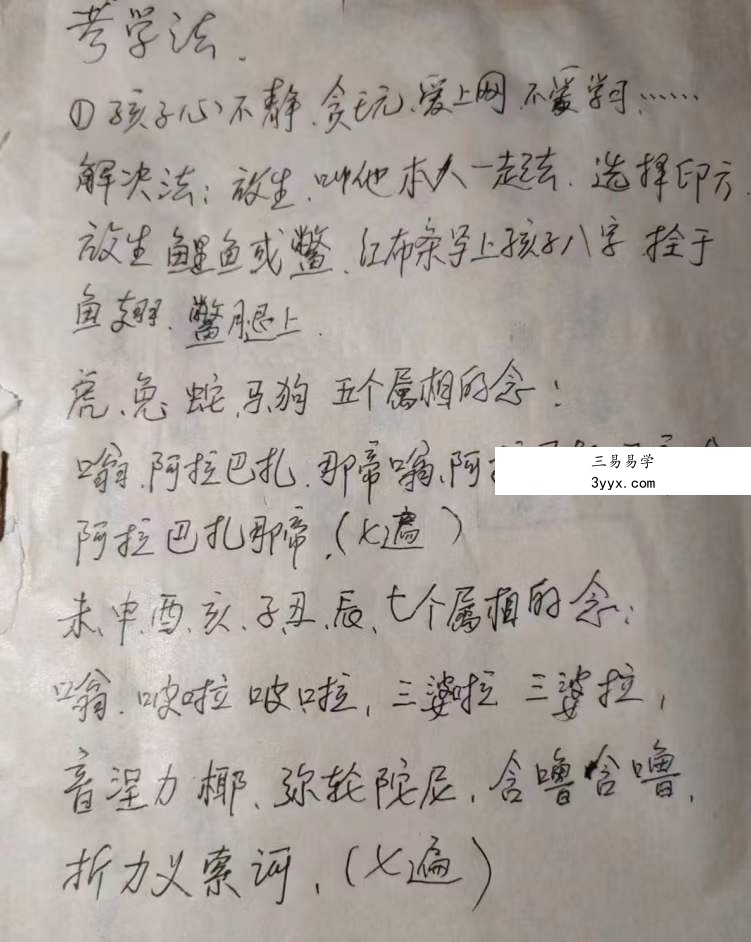 考学法、
①孩子心不静、贪玩、爱上网、不爱学习……
解决法：放生、叫他本人一起去、选择印方、
放生鲤鱼或鳖、红布条写上孩子八字 拴于
鱼翅、鳖腿上、
虎、兔、蛇、马、狗 五个属相的念：
嗡、阿拉巴扎、那啼嗡、阿拉
三易易学
3yyx.com
阿拉巴扎那啼、（七遍）
未、申、酉、亥、子、丑、辰、七个属相的念：
嗡、哎啦哎啦，三婆啦 三婆拉，
音涅力椰、弥轮陀尼，含噜含噜，
折力义索诃，（七遍）